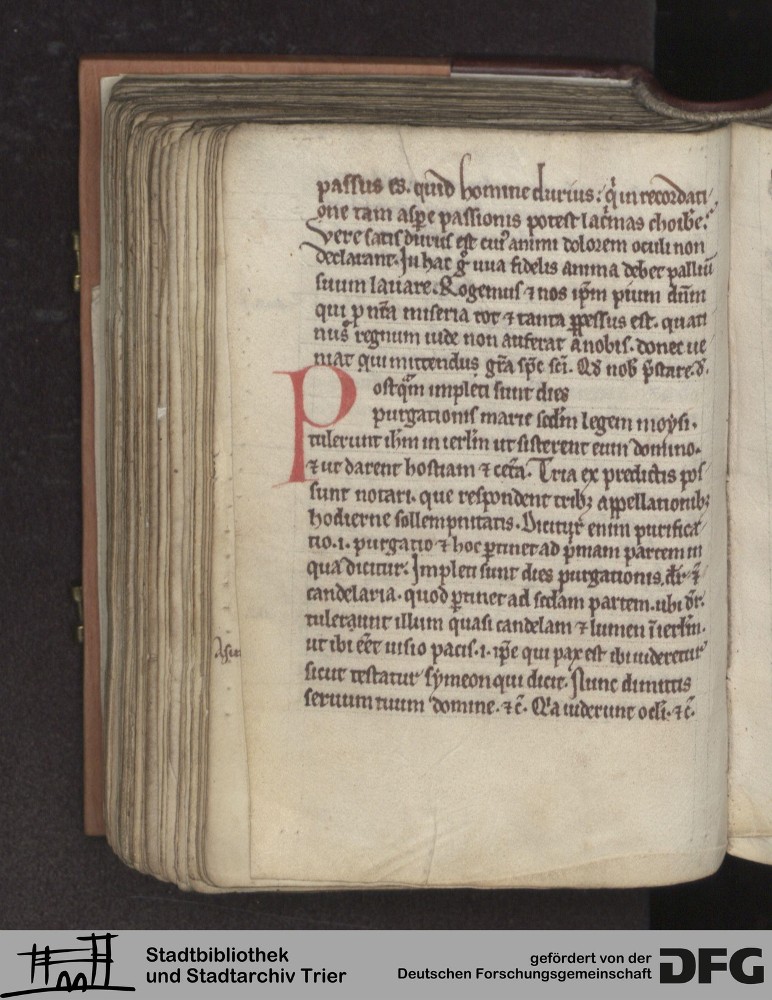 passus es. quid homine durius. qͥ in recordati
one tam aspe passionis potest lac̾mas choibe.
Vere satis durus est cui᷒ animi dolorem oculi non
declarant. In hac gͦ uua fidelis anima debet palliū
suum lauare. Rogemus ⁊ nos ip̅m pium dn̅m
qui p nr̅a miseria tot ⁊ tanta ppessus est. quati
nus regnum inde non auferat a nobis. donec ue
niat qui mittendus gr̅a sp̅c sc̅i. Qd̅ nob̅ p̅stare. d̅.
Postqͣm impleti sunt dies
purgationis marie scd̅m legem moysi.
tulerunt ih̅m in ierl̅m ut sisterent eum domino.
⁊ ut darent hostiam ⁊ cet̅a. Tria ex predictis pos
sunt notari. que respondent tribꝫ appellationibꝫ
hodierne sollempnitatis. Dicitur enim purifica
tio .i. purgatio ⁊ hoc ptinet ad pͥmam partem in
qua dicitur. Impleti sunt dies purgationis. dr̅ ⁊
candelaria. quod ptinet ad scd̅am partem. ubi dr̅.
tulerunt illum quasi candelam ⁊ lumen ī ierl̅m.
ut ibi eēt uisio pacis .i. ip̅e qui pax est ibi uideretur
sicut testatur symeon qui dicit. Nunc dimittis
seruum tuum domine. ⁊ c̅. Qͥa uiderunt ocl̅i. ⁊ c̅.
Stadtbibliothek
und Stadtarchiv Trier
gefördert von der
Deutschen Forschungsgemeinschaft
DFG